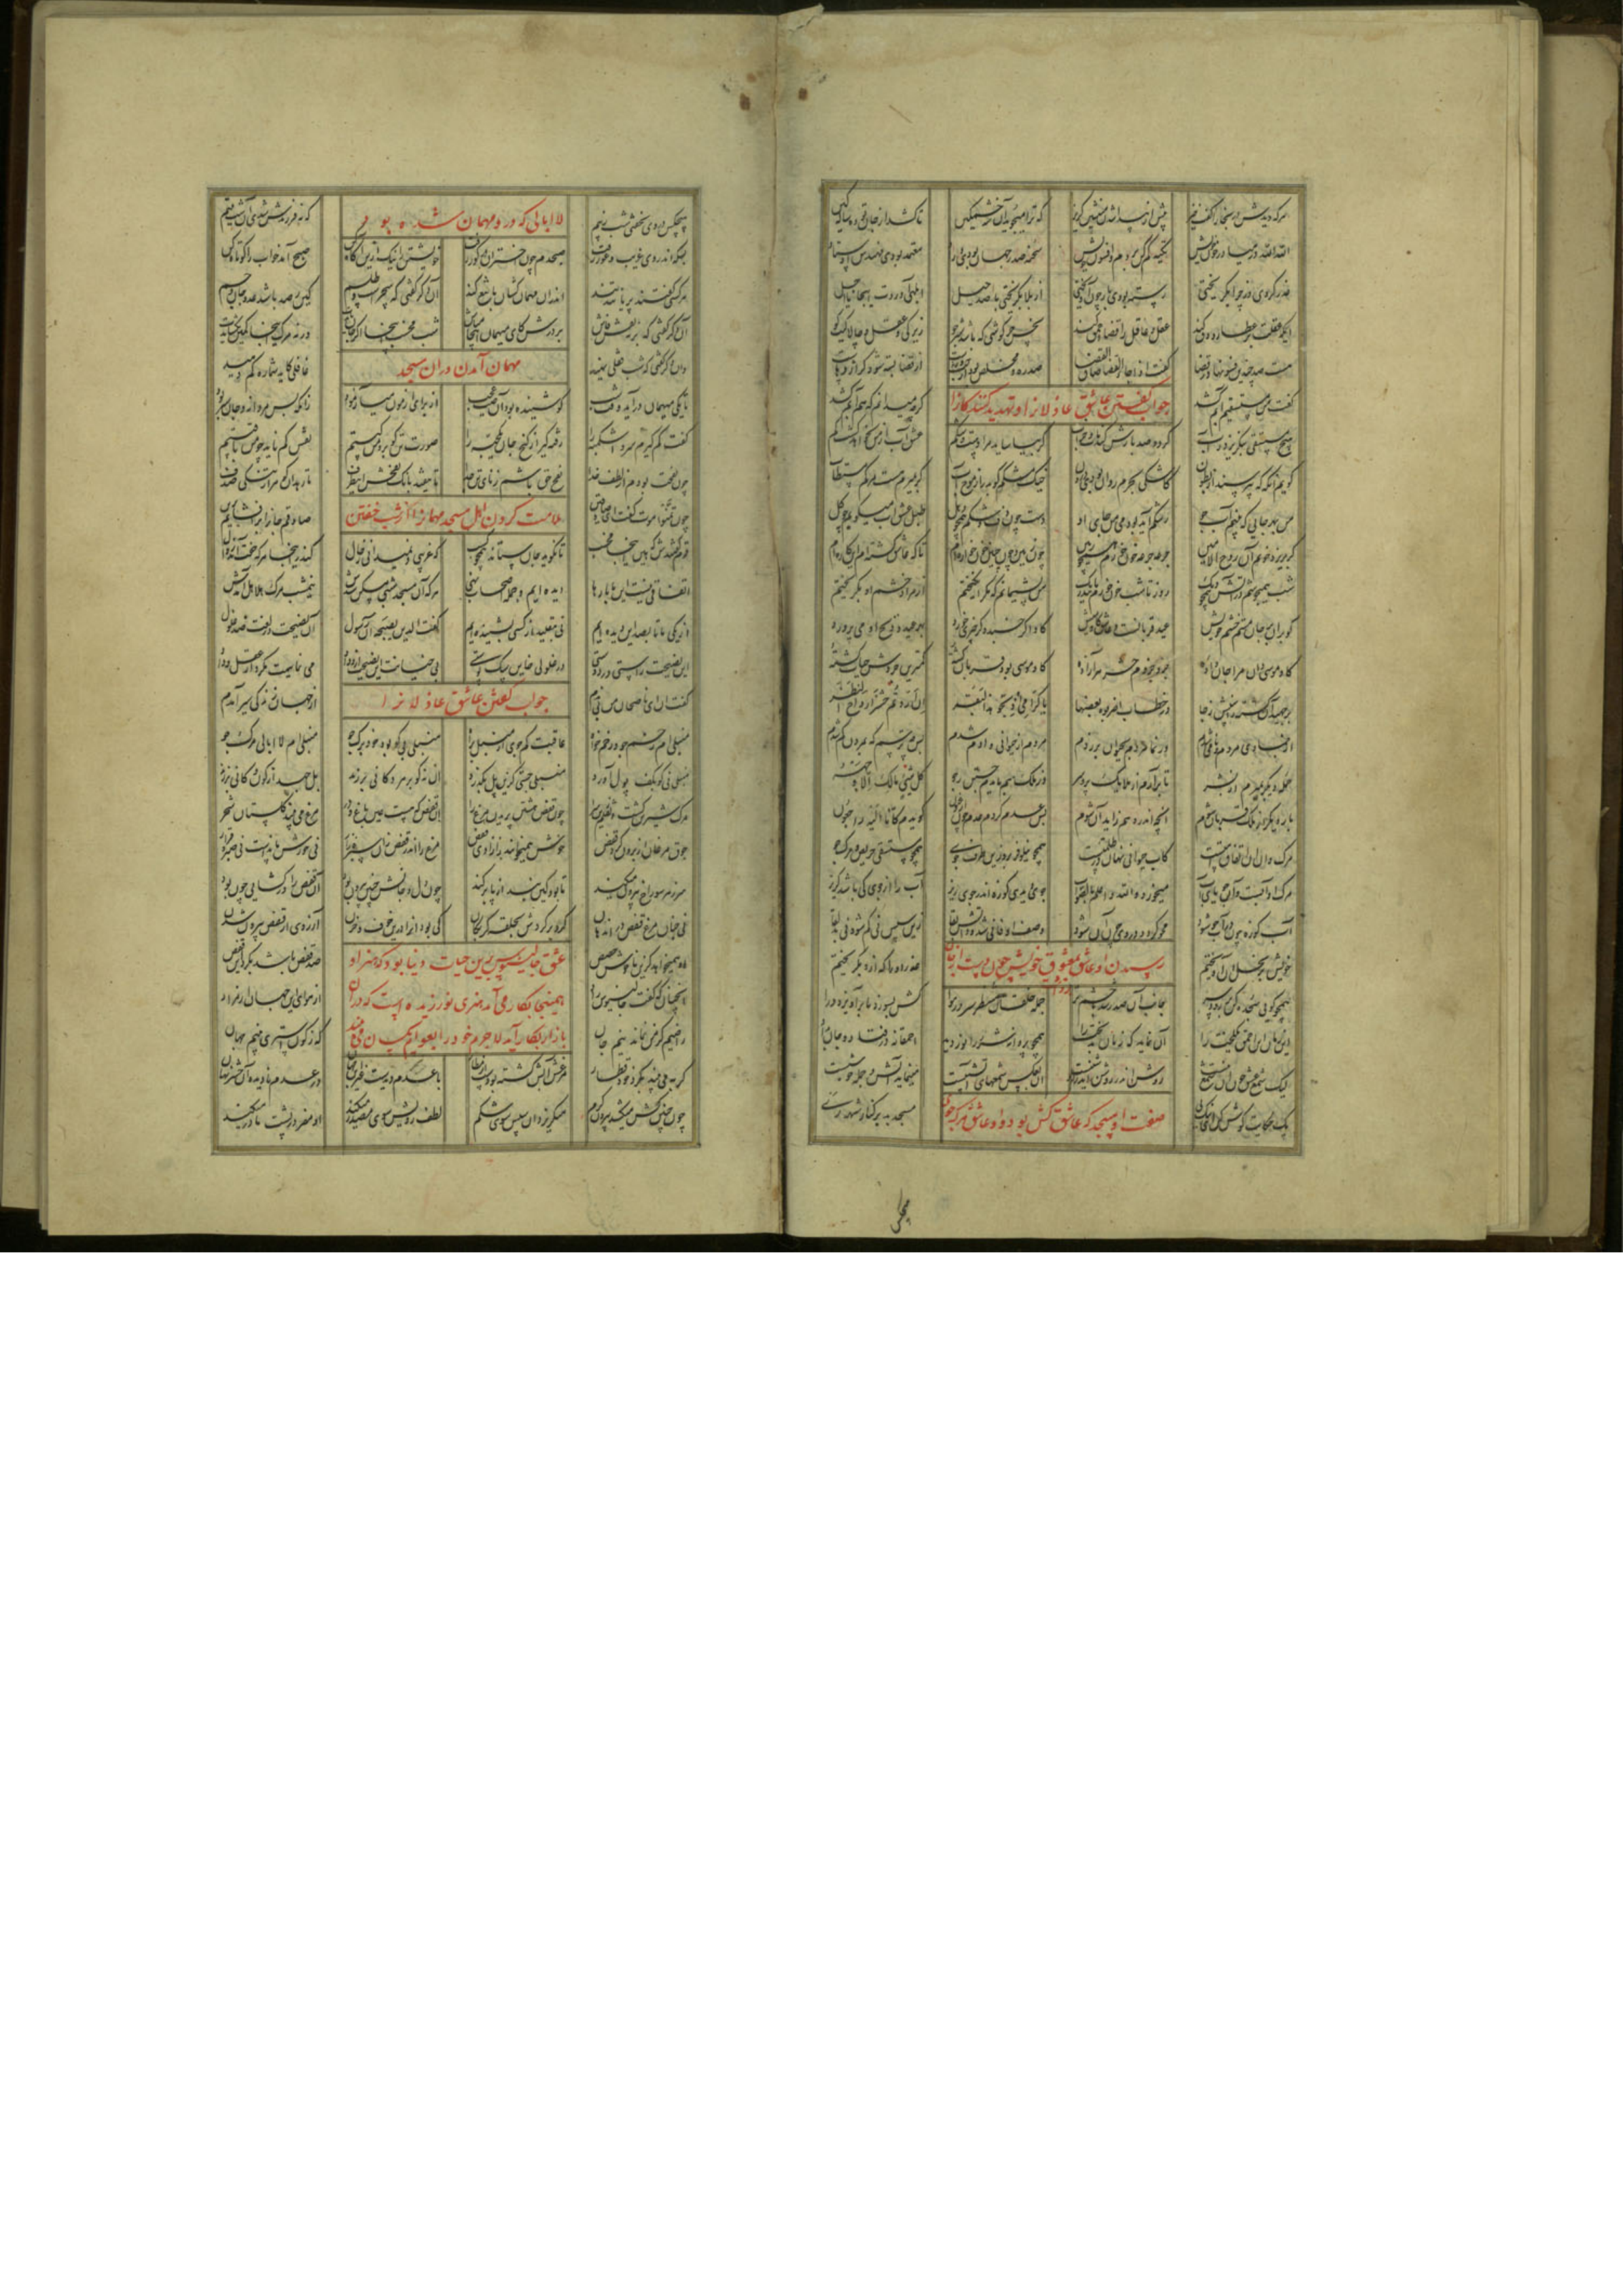 هرکه دیدش در بخارا گفت خیز پیش از پیدا شدن منشین گریز که ترا میجوید آن شه خشمگین تا کشد از جان تو ده ساله کین
الله الله در میا در خون خویش تکیه کم کن بر دم و افسون خویش شحنه صدر جهان بودی و راد معتمد بودی مهندس اوستاد
غدر کردی وز جزا بگریختی رسته بودی باز چون آویختی از بلا بگریختی با صد حیل ابلهی آوردت اینجا یا اجل
ایکه عقلت بر عطارد دق کند عقل و عاقل را قضا احمق کند نحس خرگوشی که باشد شیرجو زیرکی و عقل و چالاکیت کو
هست صد چندین فسونها در قضا گفت اذا جاء القضا ضاق الفضا صد ره و مخلص بود از چپ و راست از قضا بسته شود کو اژدهاست
جواب گفتن عاشق عاذلانرا و تهدید کنندکانرا
گفت من مستسقیم آبم کشد گرچه میدانم که هم آبم کشد
هیچ مستسقی بنگریزد ز آب گر دو صد بارش کند مات و خراب گر بیاماسد مرا دست و شکم عشق آب از من نخواهد گشت کم
گویم آنگه که بپرسند از بطون کاشکی بحرم روان بودی درون خیک اشکم گو بدر از موج آب گر بمیرم هست مرگم مستطاب
من بهر جایی که بینم آب جو رشکم آید بودمی من جای او دست چون دف و شکم همچون دهل طبل عشق آب میکوبم چو گل
گر بریزد خونم آن روح الامین جرعه جرعه خون خورم همچون زمین چون زمین و چون جنین خون خواره ام تا که عاشق گشته ام این کاره ام
شب همیجوشم در آتش همچو دیگ روز تا شب خون خورم مانند ریگ من پشیمانم که مکر انگیختم از مراد خشم او بگریختم
گو بران بر جان مستم خشم خویش عید قربان اوست و عاشق گاومیش گاو اگر خسبد و گر چیزی خورد بهر عید و ذبح او می پرورد
گاو موسی دان مرا جان داده جزو جزوم حشر هر آزاده گاو موسی بود قربان گشته کمترین جزوش حیات کشته
برجهید آن کشته ز آسیبش ز جا در خطاب اضربوه بعضها یا کرامی اذبحوا هذا البقر ان اردتم حشر ارواح النظر
از جمادی مردم و نامی شدم وز نما مردم بحیوان برزدم مردم از حیوانی و آدم شدم پس چه ترسم که ز مردن کم شدم
حمله دیگر بمیرم از بشر تا برآرم از ملایک پر و سر وز ملک هم بایدم جستن ز جو کل شیء هالک الا وجهه
بار دیگر از ملک قربان شوم آنچه اندر وهم ناید آن شوم پس عدم گردم عدم چون ارغنون گویدم کانا الیه راجعون
مرگ دان آن اتفاق امتست کاب حیوانی نهان در ظلمتست همچو نیلوفر برو زین طرف جوی همچو مستسقی حریص و مرگ جو
مرگ او آبست و آن جویای آب میخورد والله اعلم بالصواب جوی دیدی کوزه اندر جوی ریز آب را از جوی کی باشد گریز
آب کوزه چون در آب جو شود محو گردد در وی و چون آن شود وصف او فانی شد و ذاتش بقا زین سپس نی کم شود نی بدلقا
خویش بر نخل او آویختم عذر او را که ازو بگریختم
رسیدن آن عاشق بمعشوق خویش چون دست از جان
همچو گویی سجده کن بر رو و سر جانب آن صدر شد با چشم تر جمله خلقان منتظر سر در هوا کش بسوزد یا برآویزد ورا
این زمان این احمق یک لخت را آن نماید که زمان بدبخت را همچو پروانه شرر را نور دید احمقانه در فتاد از جان
لیک شمع عشق چون آن شمع نیست روشن اندر روشن اندر روشنیست او بعکس شمعهای آتشیست مینماید آتش و جمله خوشیست
یک حکایت گوش کن ای نیک پی مسجدی بد بر کنار شهر ری
صفت آن مسجد که عاشق کش بود و آن عاشق مرگ جوی
هیچکس در وی نخفتی شب ز بیم که نه فرزندش شدی آن شب یتیم
لاابالی که درو مهمان شده بود
بسکه اندر وی غریب و عور رفت صبحدم چون اختران در گور رفت خویشتن را نیک ازین آگاه کن صبح آمد خواب را کوتاه کن
هر کسی گفتند پریانند تند اندران مهمان کشان با تیغ کند آن دگر گفتی که سحرست و طلسم کین رصد باشد عدو جان و جسم
آن دگر گفتی که بر نه نقش فاش بر درش کای میهمان اینجا مباش شب مخسب اینجا اگر جان بایدت ورنه مرگ اینجا کمین بگشایدت
وان دگر گفتی که شب قفلی نهید غافلی کاید شما ره کم دهید
مهمان آمدن دران مسجد
تا یکی مهمان درآمد وقت شب کو شنیده بود آن صیت عجب از برای آزمون می آزمود زانکه بس مردانه و جان سیر بود
گفت کم گیرم سر و اشکنبه را رفته گیر از گنج جان یک حبه را صورت تن گو برو من کیستم نقش کم ناید چو من باقیستم
چون نفخت بودم از لطف خدا نفخ حق باشم ز نای تن جدا تا نیفتد بانگ نفخش این طرف تا رهد آن گوهر از تنگین صدف
چون تمنوا موت گفت ای صادقین صادقم جانرا برافشانم برین
ملامت کردن اهل مسجد مهمانرا از شب خفتن
قوم گفتندش که هین اینجا مخسب تا نکوبد جان ستانت همچو کسب که غریبی و نمیدانی ز حال کاندر اینجا هرکه خفت آمد زوال
اتفاقی نیست این ما بارها دیده ایم و جمله اصحاب نهی هرکه آن مسجد شبی مسکن شدش نیمشب مرگ هلاهل آمدش
از یکی ما تا بصد این دیده ایم نی بتقلید از کسی بشنیده ایم گفت الدین نصیحه آن رسول آن نصیحت در لغت ضد غلول
این نصیحت راستی در دوستی در غلولی خاین و سگ پوستی بی خیانت این نصیحت از وداد می نماییمت مگرد از عقل و داد
گفت او ای ناصحان من بی ندم از جهان زندگی سیر آمدم
جواب گفتن عاشق عاذلانرا
منبلی ام زخم جو و زخم خواه عافیت کم جوی از منبل براه منبلی نی کو بود خود برگ جو منبلی ام لاابالی مرگ جو
منبلی نی کو بکف پول آورد منبلی چستی کزین پل بگذرد آن نه کو بر هر دکانی برزند بل جهد از کون و کانی برزند
مرگ شیرین گشت و نقلم زین سرا چون قفس هشتن پریدن مرغ را آن قفس که هست عین باغ در مرغ می بیند گلستان و شجر
جوق مرغان از برون گرد قفس خوش همیخوانند ز آزادی قصص مرغ را اندر قفس زان سبزه زار نی خورش ماندست نی صبر و قرار
سر ز هر سوراخ بیرون میکند تا بود کین بند از پا برکند چون دل و جانش چنین بیرون بود آن قفس را در گشایی چون بود
نی چنان مرغ قفس در اندهان گرد بر گردش بحلقه گربگان کی بود او را درین خوف و حزن آرزوی از قفس بیرون شدن
او همیخواهد کزین ناخوش حصص صد قفس باشد بگرد این قفس
عشق جالینوس برین حیات دنیا بود که هنر او
همینجا بکار می آمد هنری نورزیده است که دران
بازار بکار آید لاجرم خود را بعوام یکسان می بیند
آنچنان که گفت جالینوس راد از هوای این جهان و از مراد
راضیم کز من بماند نیم جان که ز کون استری بینم جهان
گربه می بیند بگرد خود قطار مرغش آیس گشته بودست از مطار یا عدم دیدست غیر این جهان در عدم نادیده آن حشر نهان
چون جنین کش میکشد بیرون کرم میگریزد او سپس سوی شکم لطف رویش سوی مصدر میکند او مقر در پشت مادر میکند
مجلس